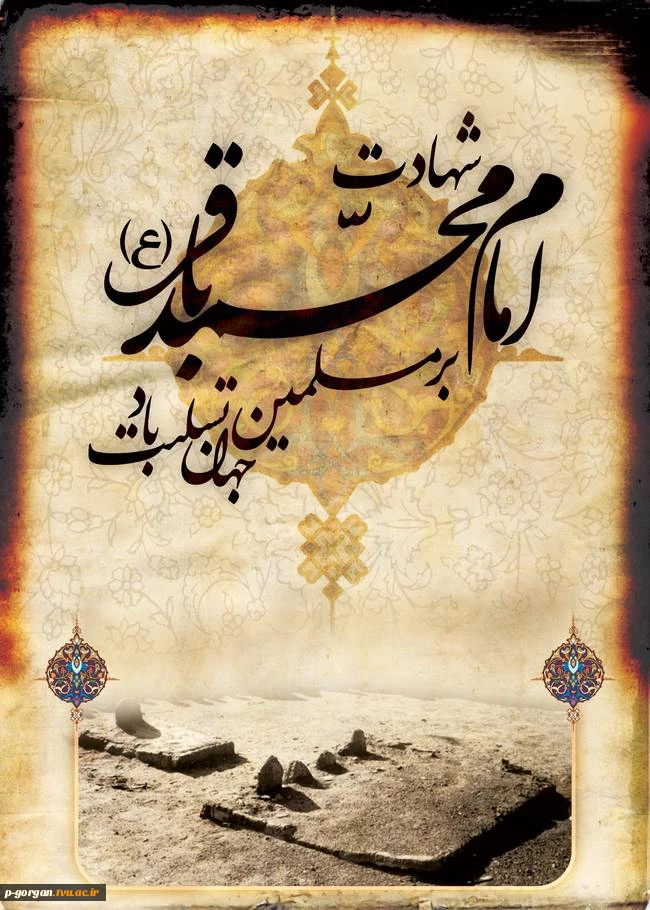 شهادت
امام محمد باقر (ع)
بر مسلمین
جهان تسلیت باد
p-gorgan.tvu.ac.ir